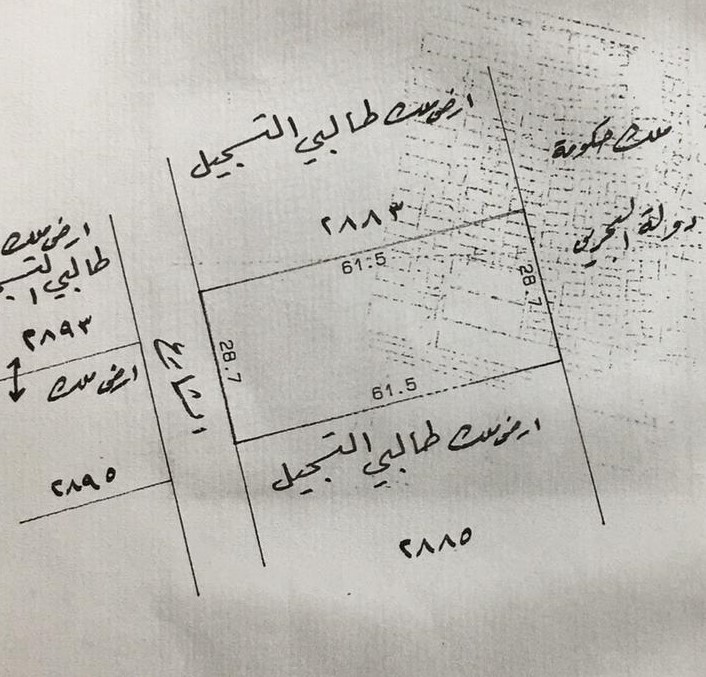 ارض ملك طالبي التسجيل
٢٨٨٣
61.5
ملك حكومة
دولة البحرين
28.7
28.7
61.5
الشارع
ارض ملك طالبي التسجيل
٢٨٨٥
ارض ملك
طالبي
٢٨٩٣
ارض ملك
٢٨٩٥